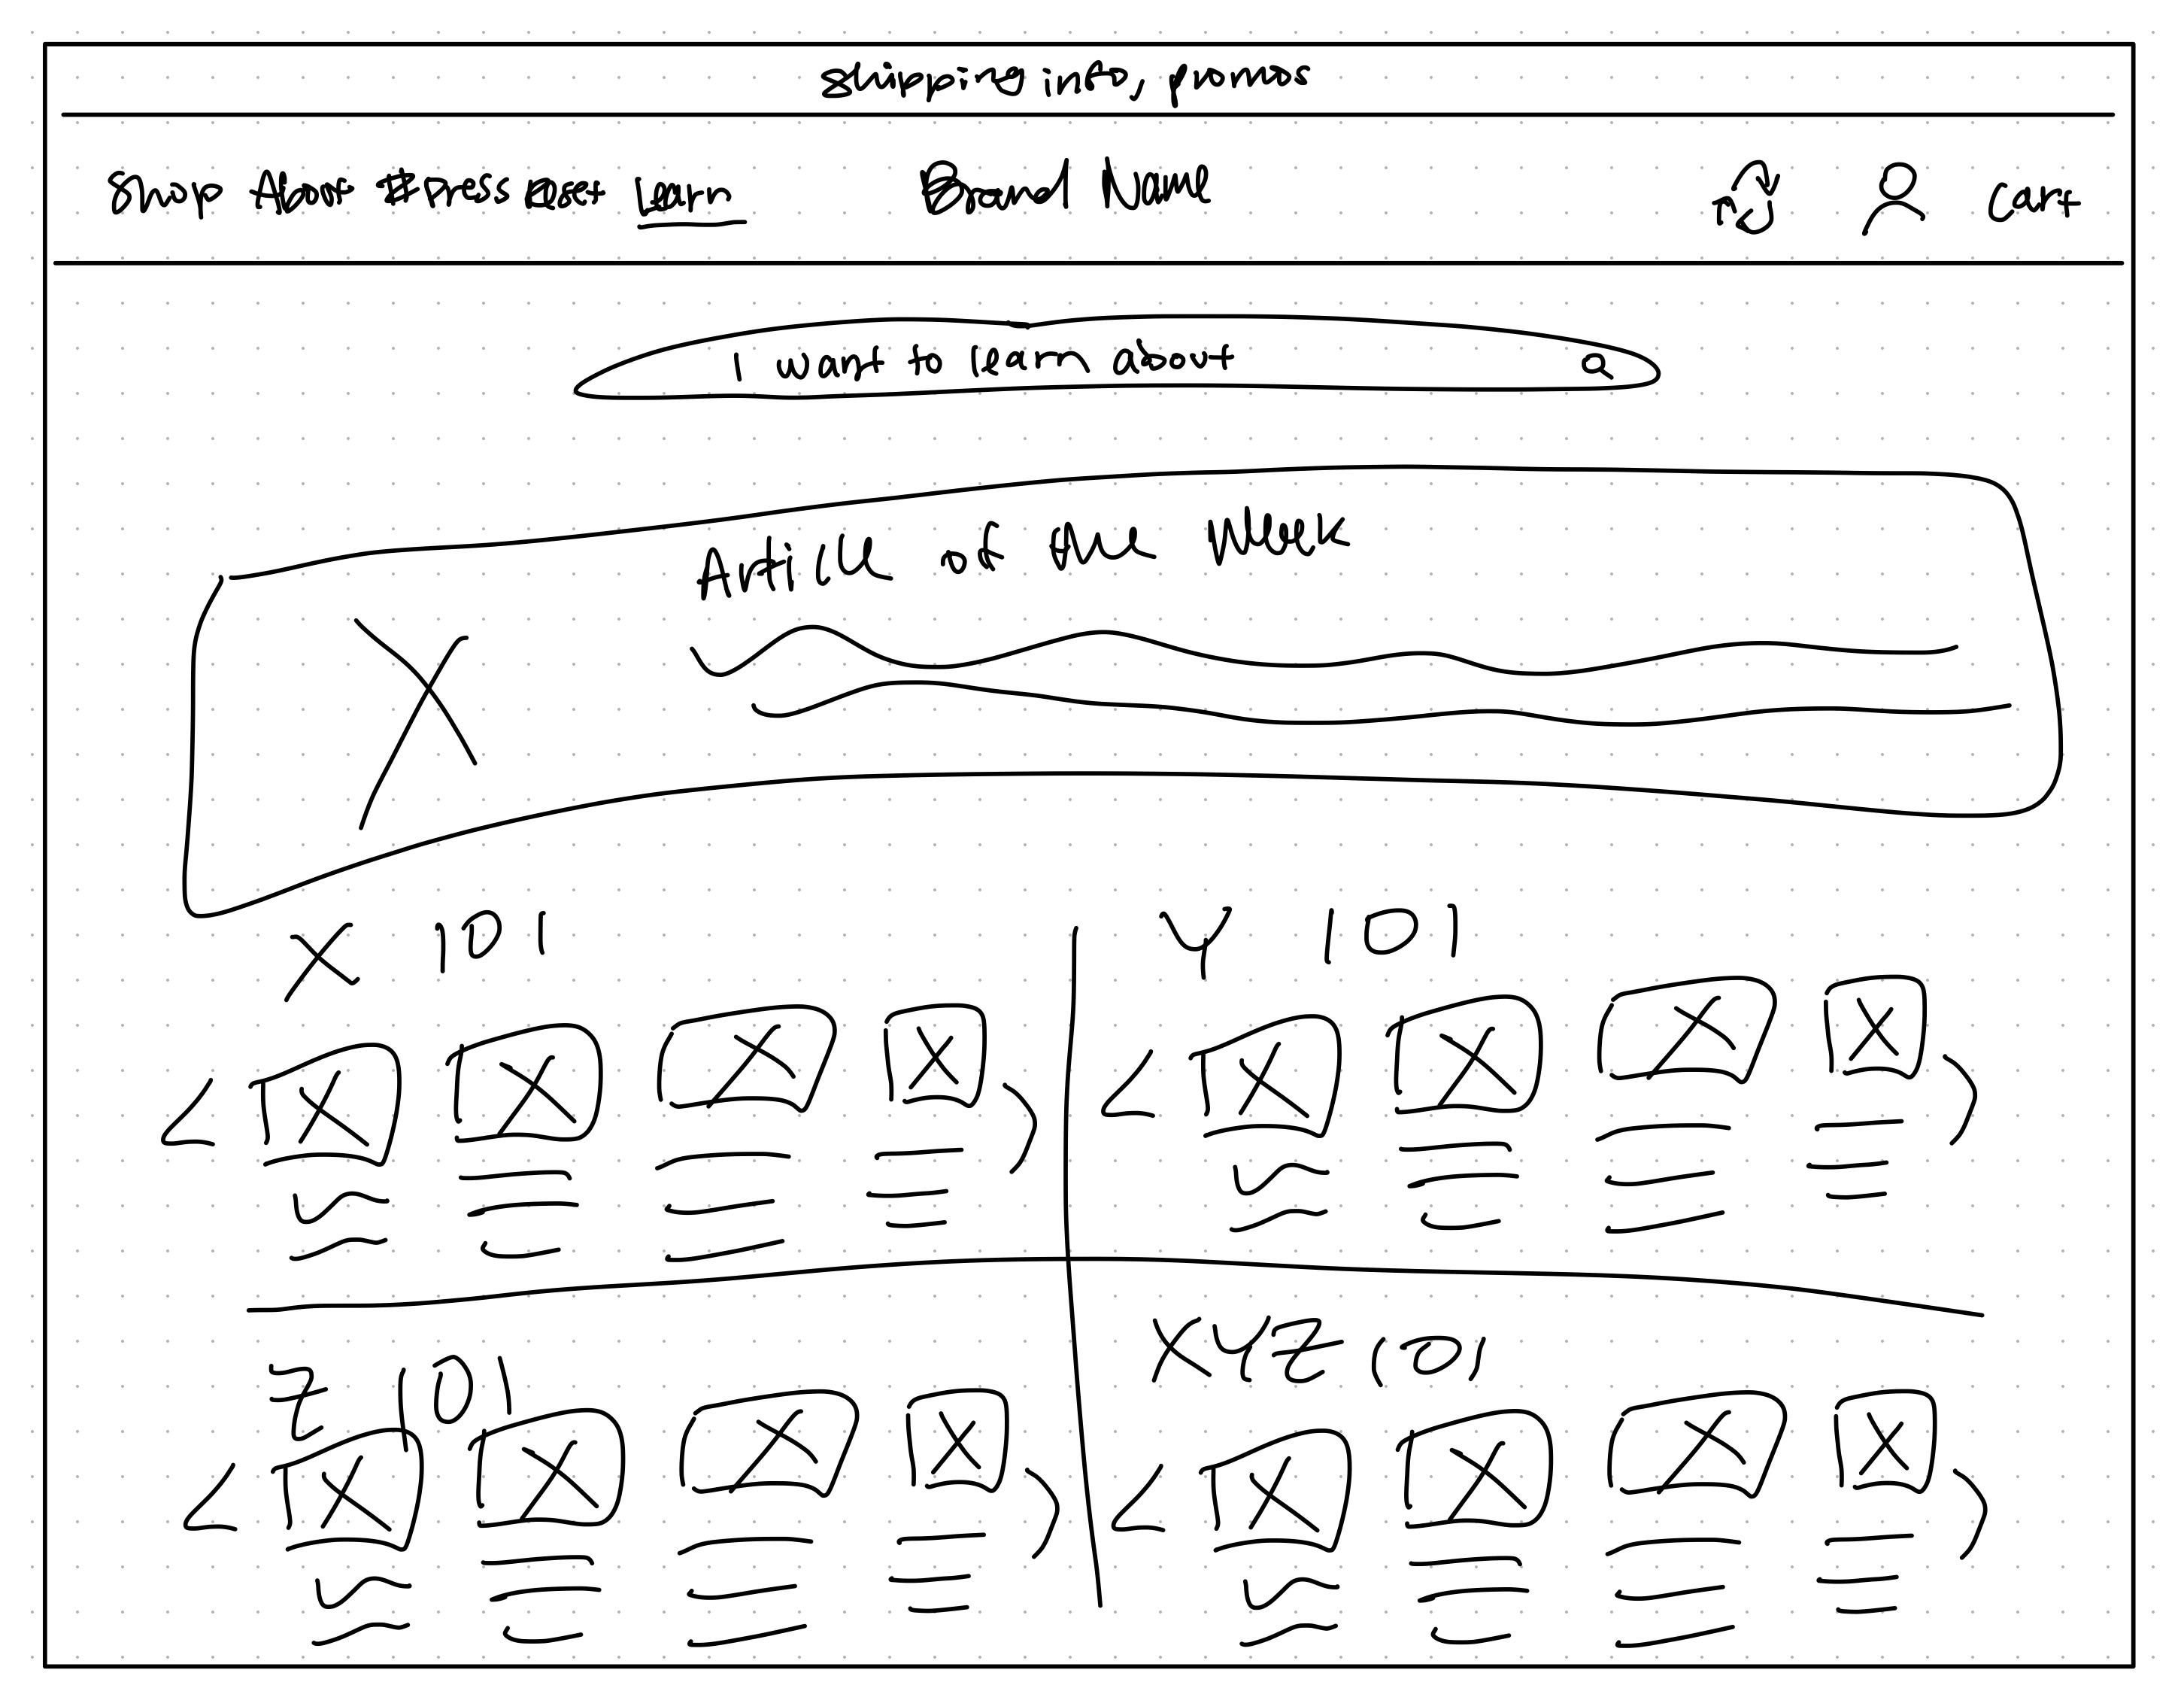 shipping info, promos
Shop About Press Quiz Learn
Brand Name
cart
I want to learn about
Article of the Week
X 101
Y 101
Z 101
XYZ 101